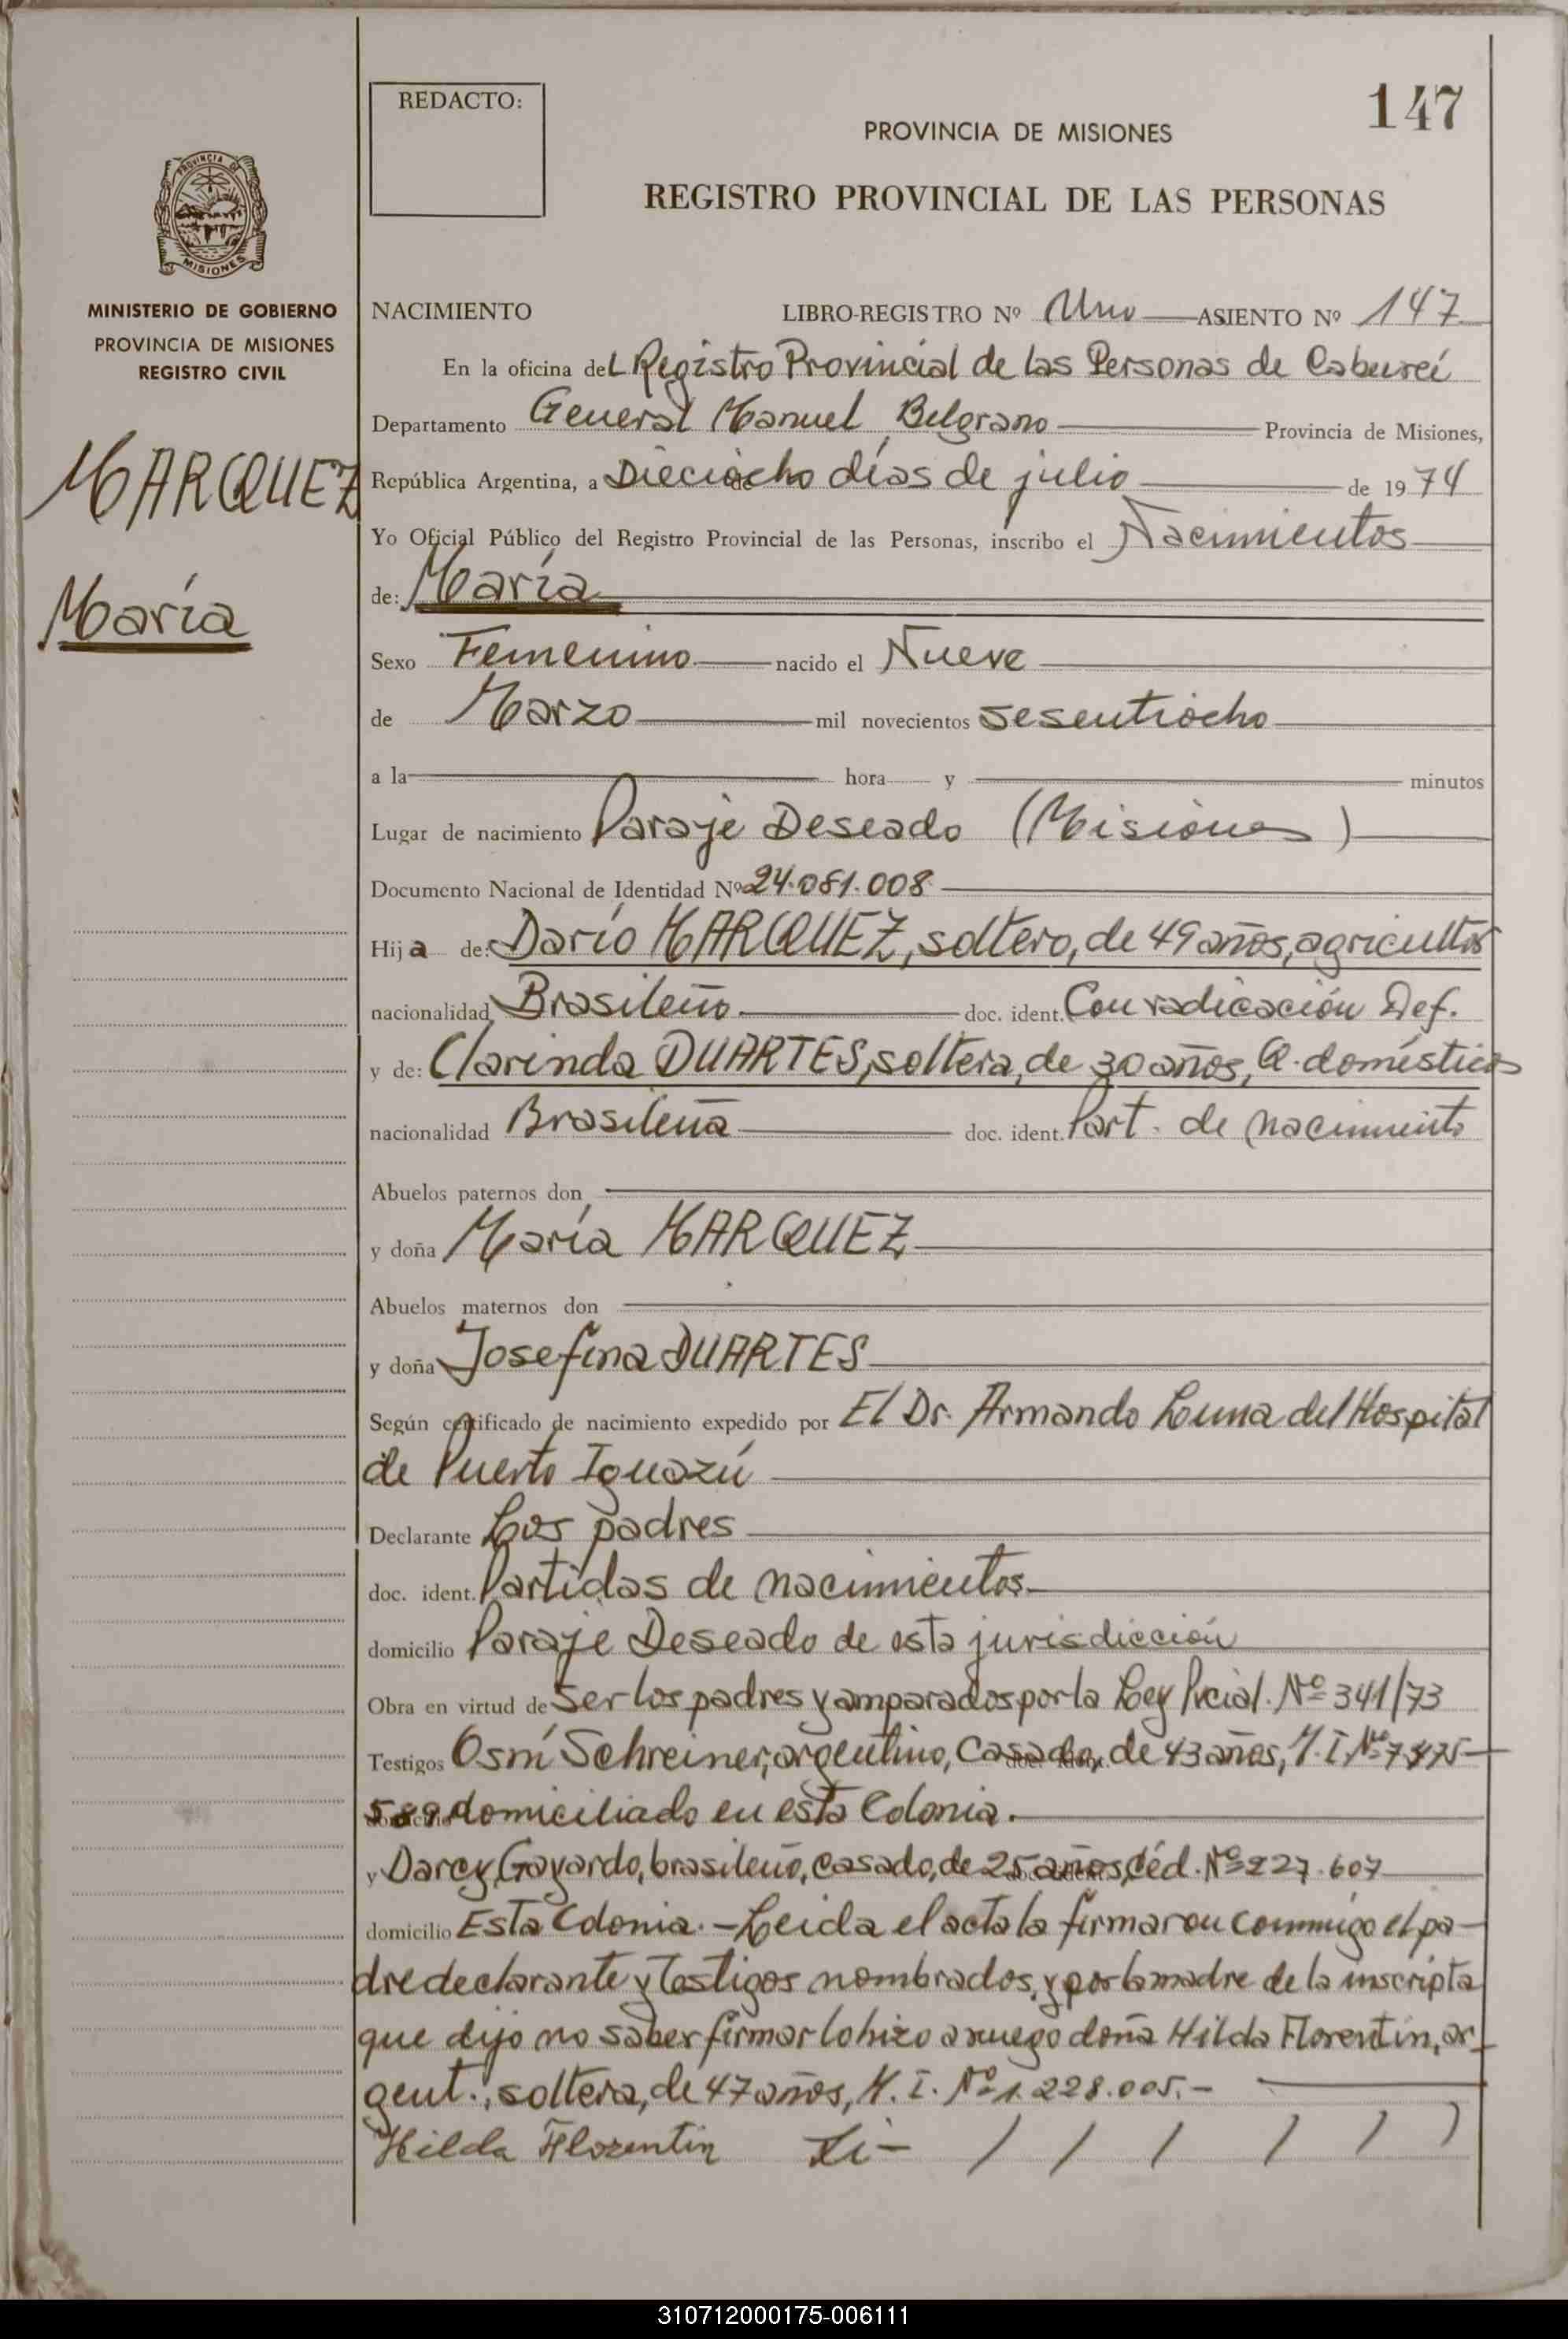 REDACTO:
147
PROVINCIA DE MISIONES
REGISTRO PROVINCIAL DE LAS PERSONAS
PROVINCIA DE
MISIONES
MINISTERIO DE GOBIERNO
PROVINCIA DE MISIONES
REGISTRO CIVIL
MARQUEZ
María
NACIMIENTO LIBRO-REGISTRO Nº Uno ASIENTO Nº 147
En la oficina del Registro Provincial de las Personas de Cabureí
Departamento General Manuel Belgrano Provincia de Misiones,
República Argentina, a Dieciocho días de julio de 1974
Yo Oficial Público del Registro Provincial de las Personas, inscribo el Nacimientos
de: María
Sexo Femenino nacido el Nueve
de Marzo mil novecientos sesentiocho
a la hora y minutos
Lugar de nacimiento Paraje Deseado (Misiones)
Documento Nacional de Identidad Nº 24.081.008
Hija de: Darío MARQUEZ, soltero, de 49 años, agricultor
nacionalidad Brasileño doc. ident. Con radicación Def.
y de: Clarinda DUARTES, soltera, de 30 años, Q. domésticos
nacionalidad Brasileña doc. ident. Part. de nacimiento
Abuelos paternos don
y doña María MARQUEZ
Abuelos maternos don
y doña Josefina DUARTES
Según certificado de nacimiento expedido por El Dr. Armando Luna del Hospital
de Puerto Iguazú
Declarante Los padres
doc. ident. Partidas de nacimientos
domicilio Paraje Deseado de esta jurisdicción
Obra en virtud de Ser los padres y amparados por la Ley Pvcial. Nº 341/73
Testigos Osmí Schreiner, argentino, casado, de 43 años, M.I. Nº
589 domiciliado en esta Colonia.
y Darcy Gayardo, brasileño, casado, de 25 años, Céd. Nº 227.607
domicilio Esta Colonia.- Leida el acta la firmaron conmigo el pa-
dre declarante y testigos nombrados, y por la madre de la inscripta
que dijo no saber firmar lo hizo a ruego doña Hilda Florentín, ar-
gent., soltera, de 47 años, M.I. Nº 1.228.005.-
Hilda Florentin
310712000175-006111